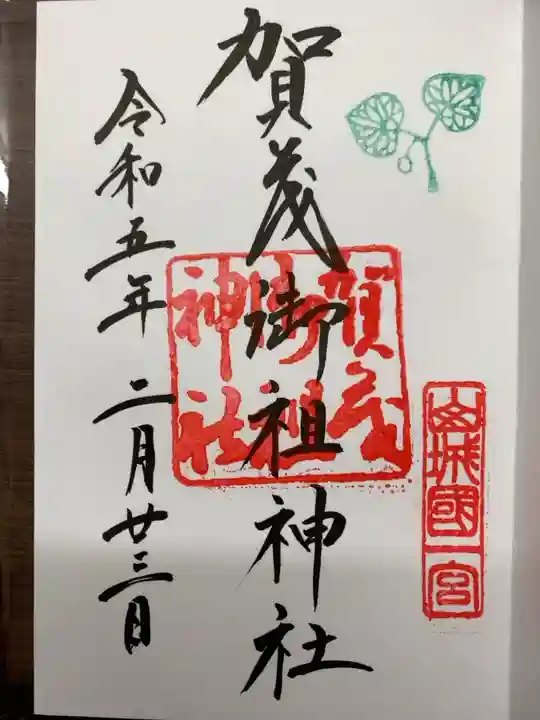 山城國一宮
賀茂御祖神社
賀茂
御祖
神社
令和五年二月廿三日